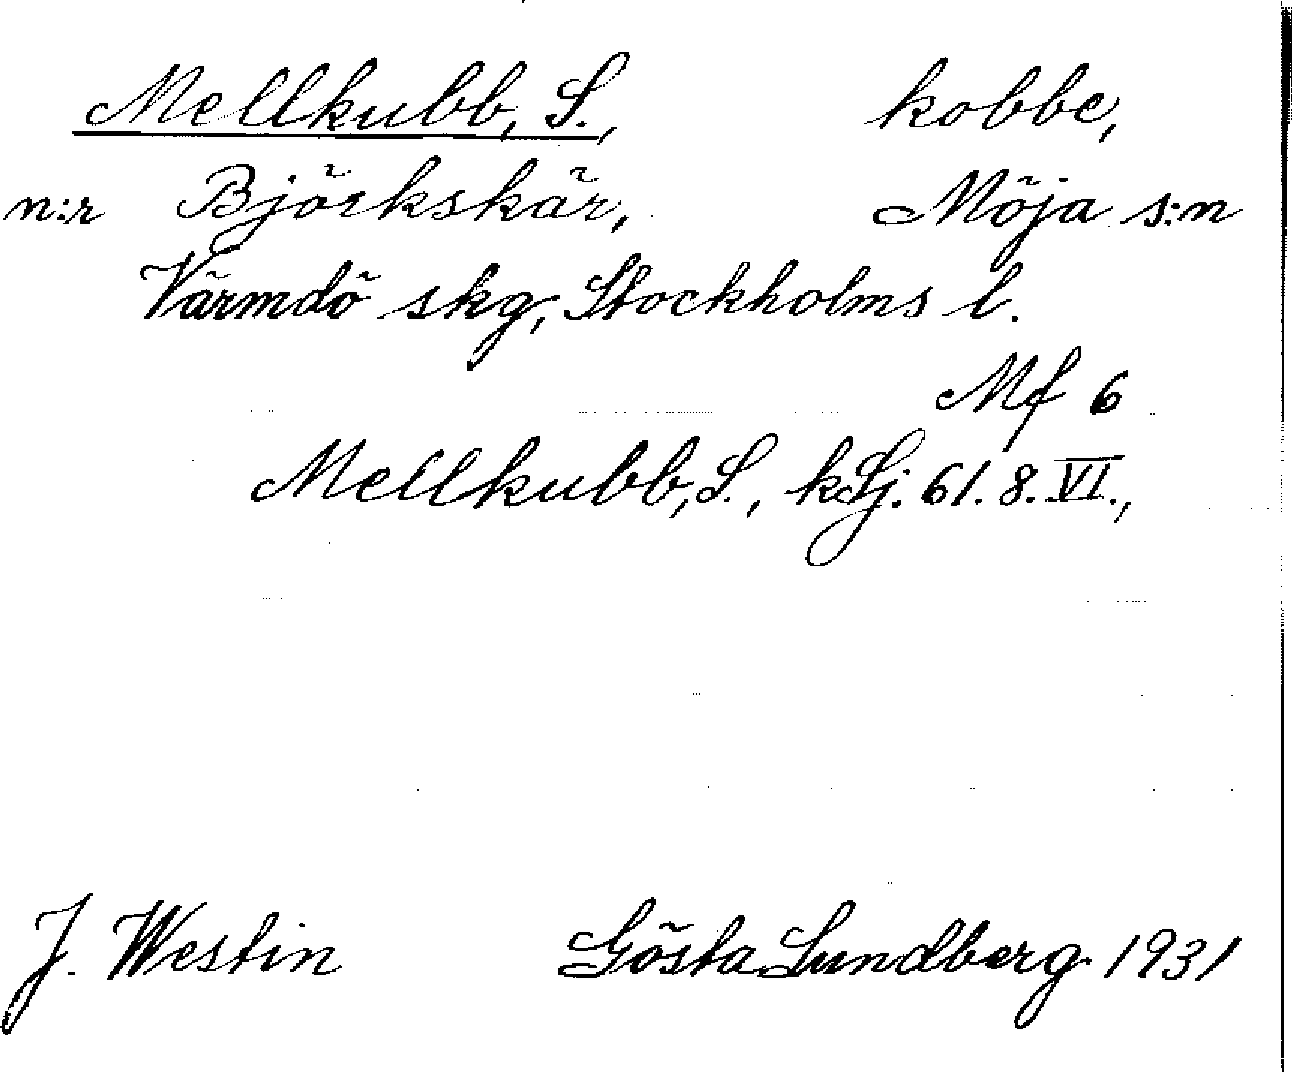 Mellkubb, S., kobbe,
n:r Björkskär, Möja s:n
Värmdö skg, Stockholms l.
Mf 6
Mellkubb, S., kSj. 61. 8. VI.,
J. Westin Gösta Lundberg 1931